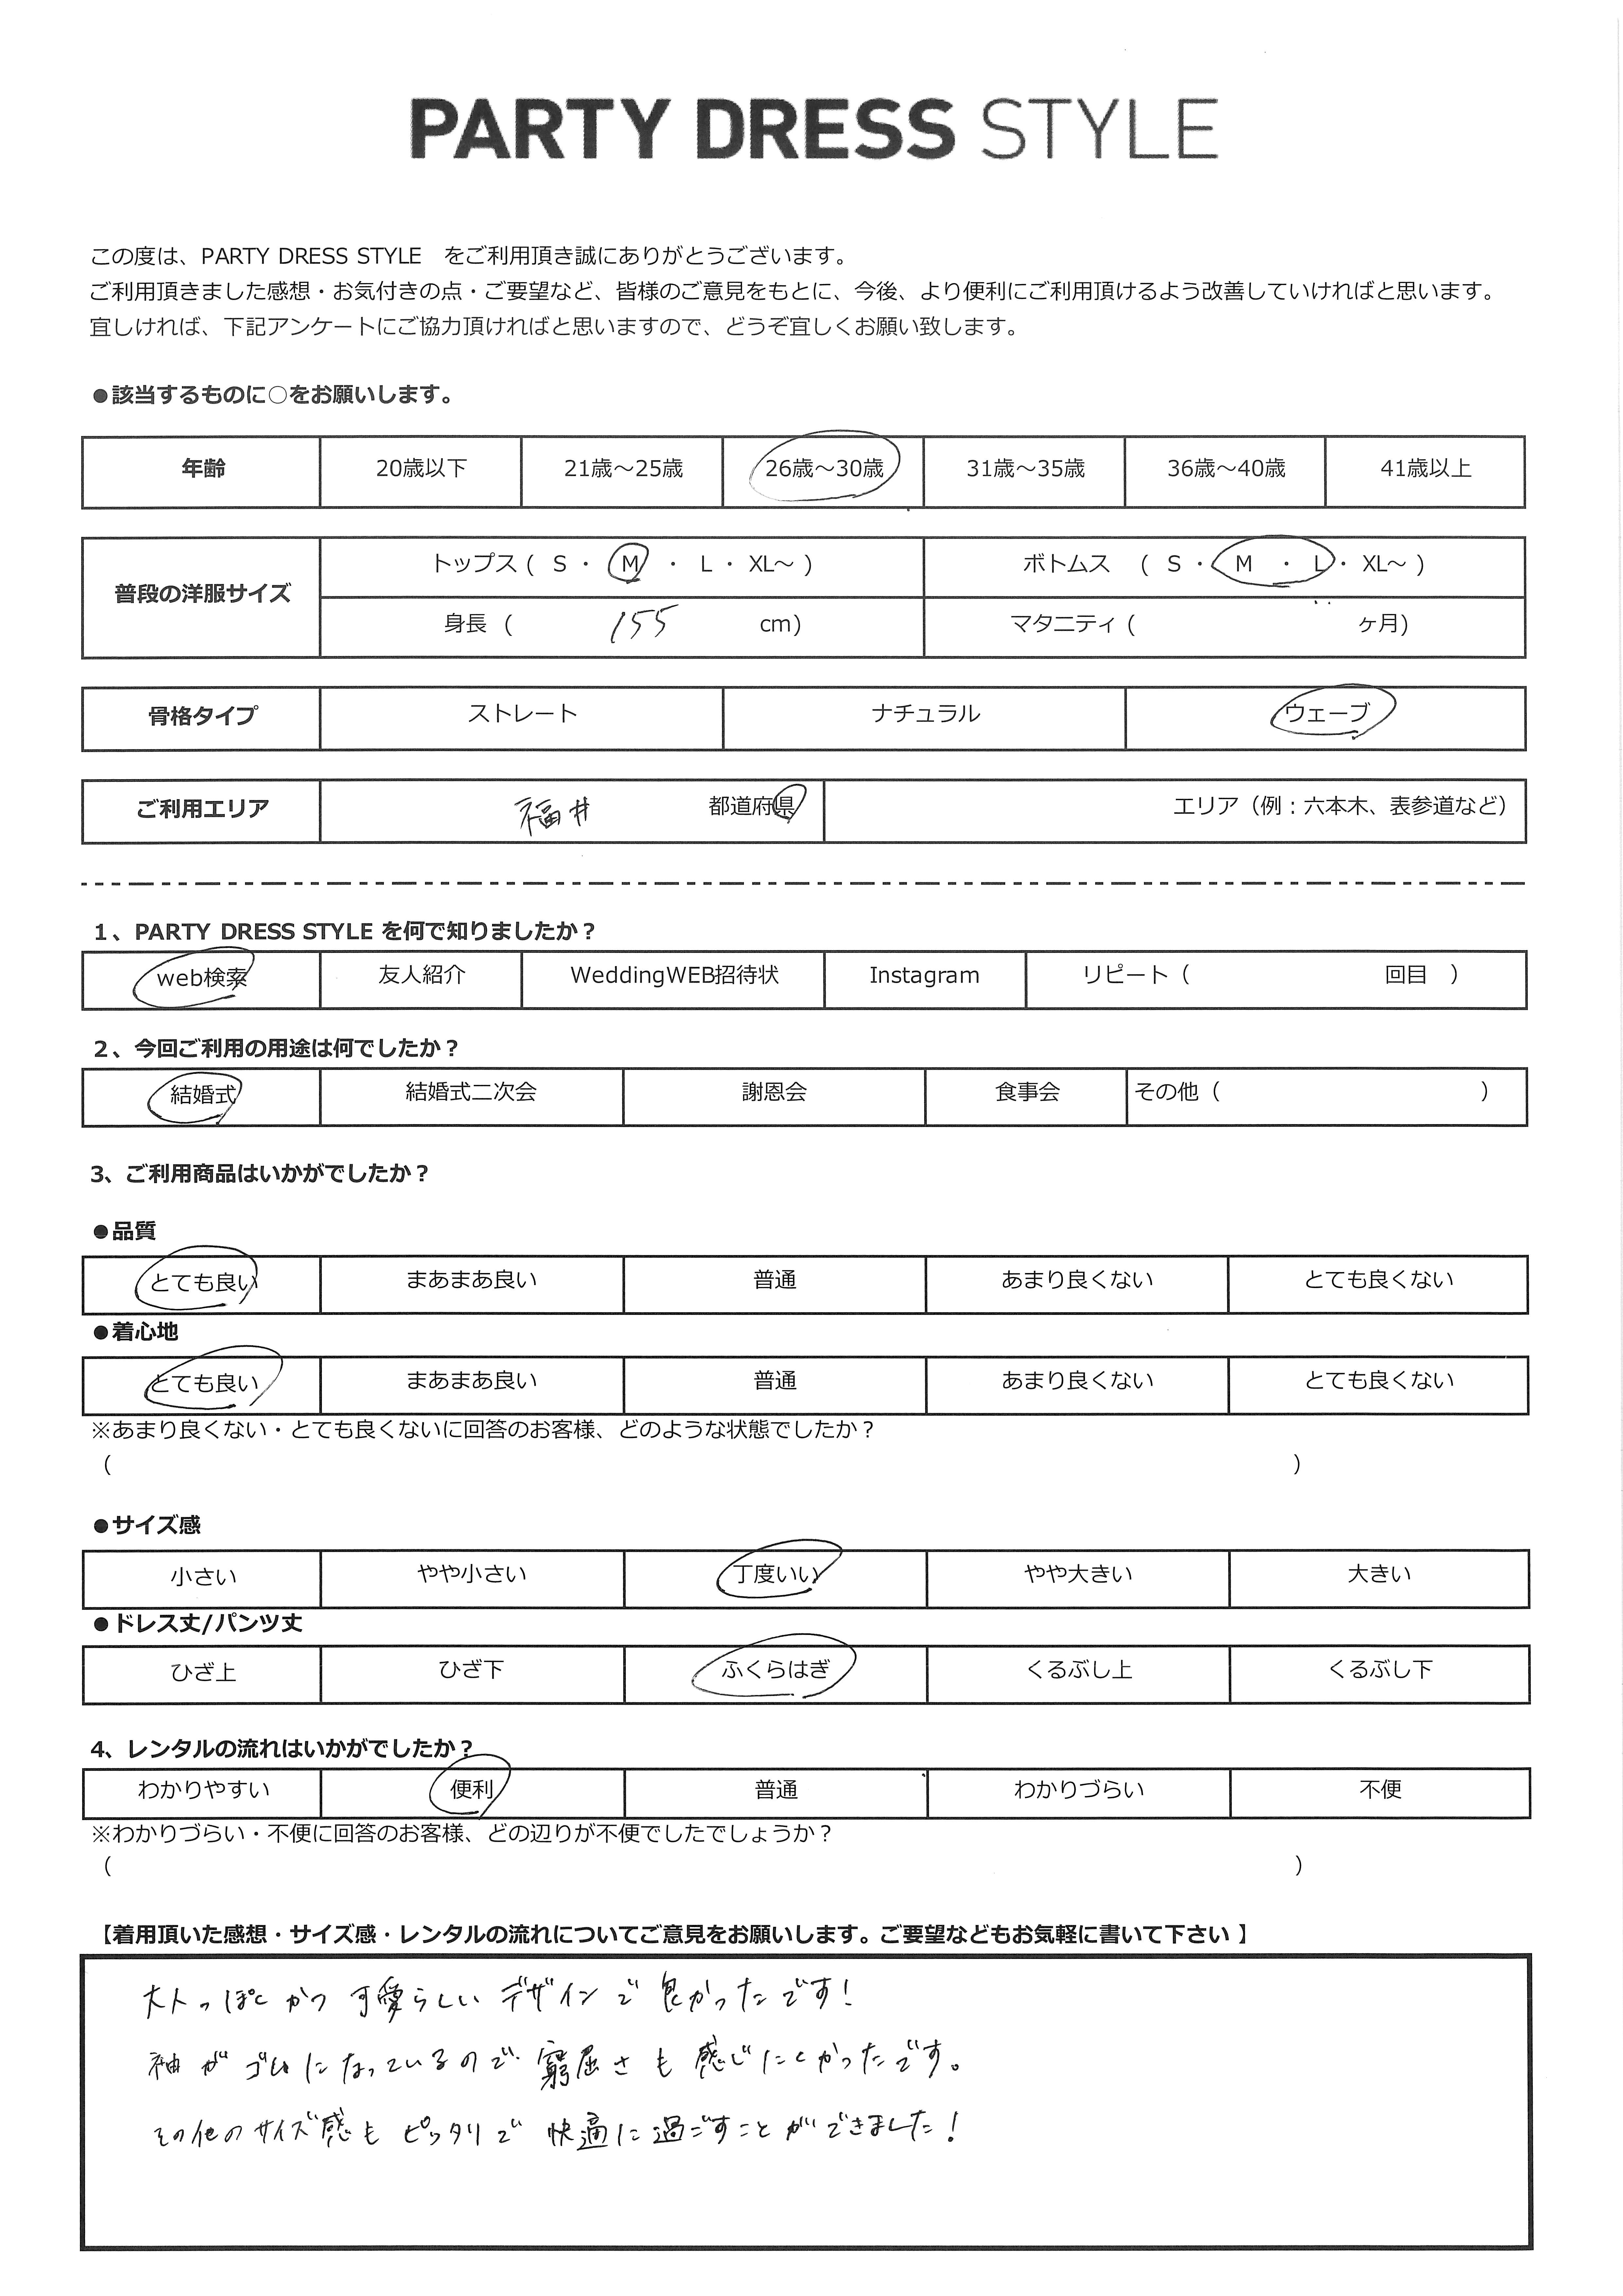 PARTY DRESS STYLE
この度は、PARTY DRESS STYLE　をご利用頂き誠にありがとうございます。
ご利用頂きました感想・お気付きの点・ご要望など、皆様のご意見をもとに、今後、より便利にご利用頂けるよう改善していければと思います。
宜しければ、下記アンケートにご協力頂ければと思いますので、どうぞ宜しくお願い致します。
●該当するものに○をお願いします。
年齢 20歳以下 21歳～25歳 26歳～30歳 31歳～35歳 36歳～40歳 41歳以上
普段の洋服サイズ トップス ( S ・ M ・ L ・ XL～ ) ボトムス ( S ・ M ・ L ・ XL～ )
身長 ( 155 cm) マタニティ ( ヶ月)
骨格タイプ ストレート ナチュラル ウェーブ
ご利用エリア 福井 都道府県 エリア（例：六本木、表参道など）
1、PARTY DRESS STYLE を何で知りましたか？
web検索 友人紹介 WeddingWEB招待状 Instagram リピート（ 回目 ）
2、今回ご利用の用途は何でしたか？
結婚式 結婚式二次会 謝恩会 食事会 その他（ ）
3、ご利用商品はいかがでしたか？
●品質
とても良い まあまあ良い 普通 あまり良くない とても良くない
●着心地
とても良い まあまあ良い 普通 あまり良くない とても良くない
※あまり良くない・とても良くないに回答のお客様、どのような状態でしたか？
（ ）
●サイズ感
小さい やや小さい 丁度いい やや大きい 大きい
●ドレス丈/パンツ丈
ひざ上 ひざ下 ふくらはぎ くるぶし上 くるぶし下
4、レンタルの流れはいかがでしたか？
わかりやすい 便利 普通 わかりづらい 不便
※わかりづらい・不便に回答のお客様、どの辺りが不便でしたでしょうか？
（ ）
【着用頂いた感想・サイズ感・レンタルの流れについてご意見をお願いします。ご要望などもお気軽に書いて下さい 】
大人っぽくかつ 可愛らしい デザインで 良かったです！
袖が ゴムになっているので 窮屈さも 感じにくかったです。
その他のサイズ感も ピッタリで 快適に過ごすことができました！